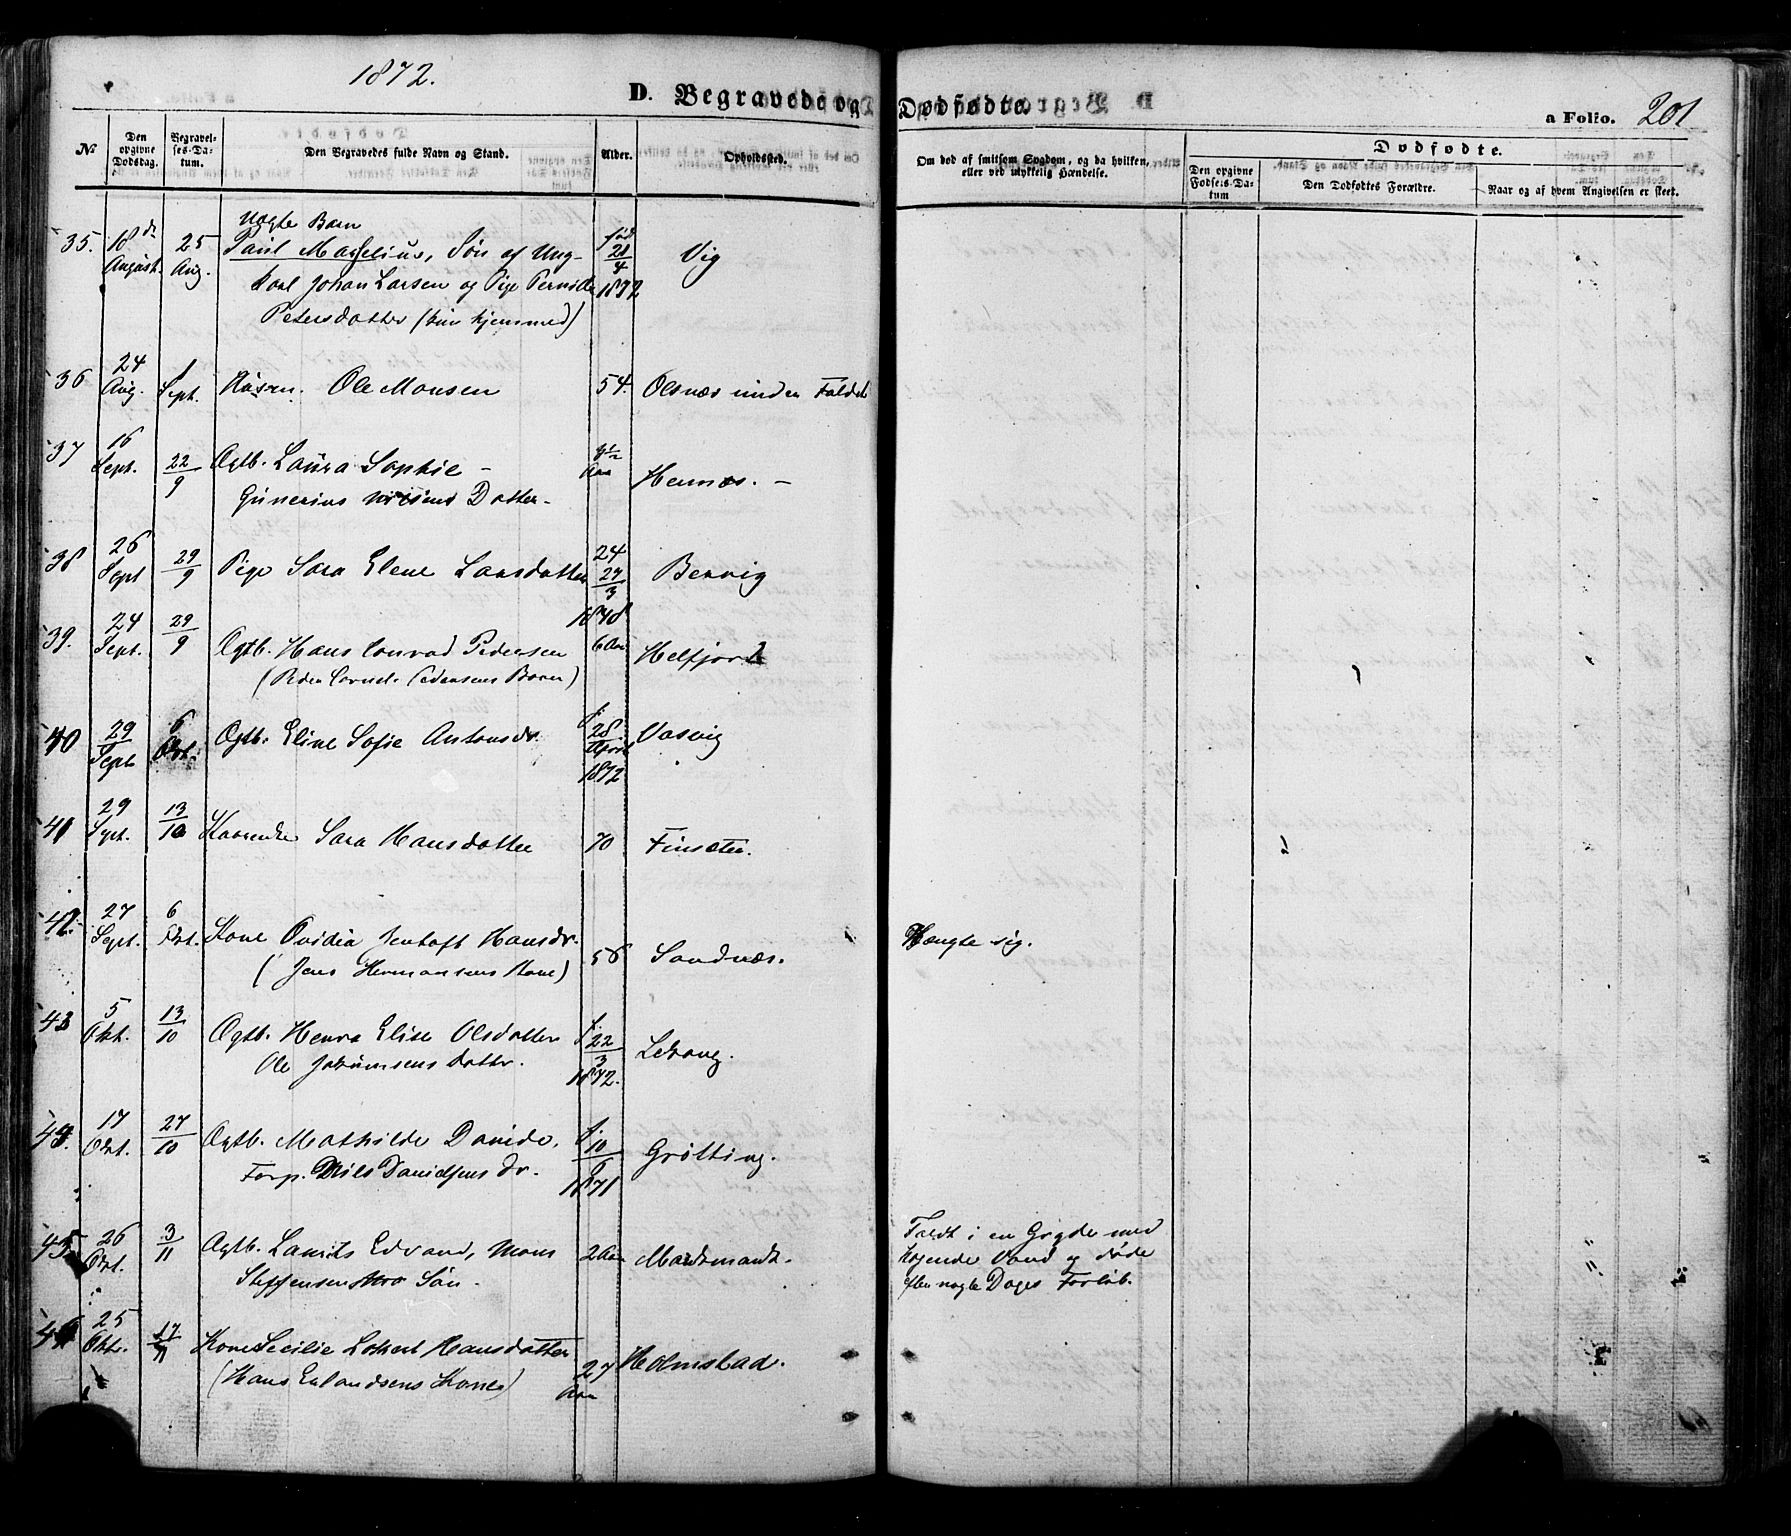 1872.
D. Begravede og Dødfødte.
a Folio. 201
No
Den opgivne Dødsdag.
Begravelses-Datum.
Den Begravedes fulde Navn og Stand.
Alder.
Opholdssted.
Om død af smitsom Sygdom, og da hvilken, eller ved ulykkelig Hændelse.
Dødfødte.
Den opgivne Fødsels-Datum
Den Dødfødtes Forældre.
Naar og af hvem Angivelsen er skeet.
Uægte Barn
35. 18de August. 25 Aug. Paul Marselius, Søn af Ung- fød 21/4 1872 Vig
karl Johan Larsen og Pige Pernille
Petersdatter (hun hjemmed)
36 24 Aug. 1 Sept. Husm. Ole Monsen 54. Olsnæs under
37 16 Sept. 22/9 Ægtb. Laura Sophie - Aar Hennæs. -
Gunerius Datter -
38 26 Sept 29/9 Pige Sara Elene Larsdatter 24 27/3 1848 Bervig
39. 24 Sept. 29/9 Ægtb. Hans Conrad Pedersen 6 Aar Helfjord
(Peder Cornel. Pedersens Barn)
40 29 Sept 6 Okt. Ægtb. Eline Sofie Antonsdr. f. 28 April 1872 Vasvig
41 29 Sept. 13/10 Sara Hansdatter 70 Finsæter.
42. 27 Sept. 6 Okt. Kone Ovidia Jentoft Hansdr. 56 Sandnæs. Hængte sig.
(Jens Hermansens Kone)
43 5 Okt. 13/10 Ægtb. Henra Elise Olsdatter f. 22/3 1872. Lekang.
Ole Jakumsens Datter.
44. 17 Okt. 27/10 Ægtb. Mathilde Davide, f. 10/6 1871 Grøtting.
Forp. Nils Davidsens Dr.
45. 26 Okt. 3/11 Ægtb. Laurits Edvard, Mons 2 Aar Mardsmardt. Faldt i en Gryde med
Steffensen Søn. kogende Vand og døde
efter nogle Dages Forløb.
46 25 Okt. 17/11 Kone Cecilie Lohert Hansdatter 27 Aar Holmstad.
(Hans Erlandsens Kone)